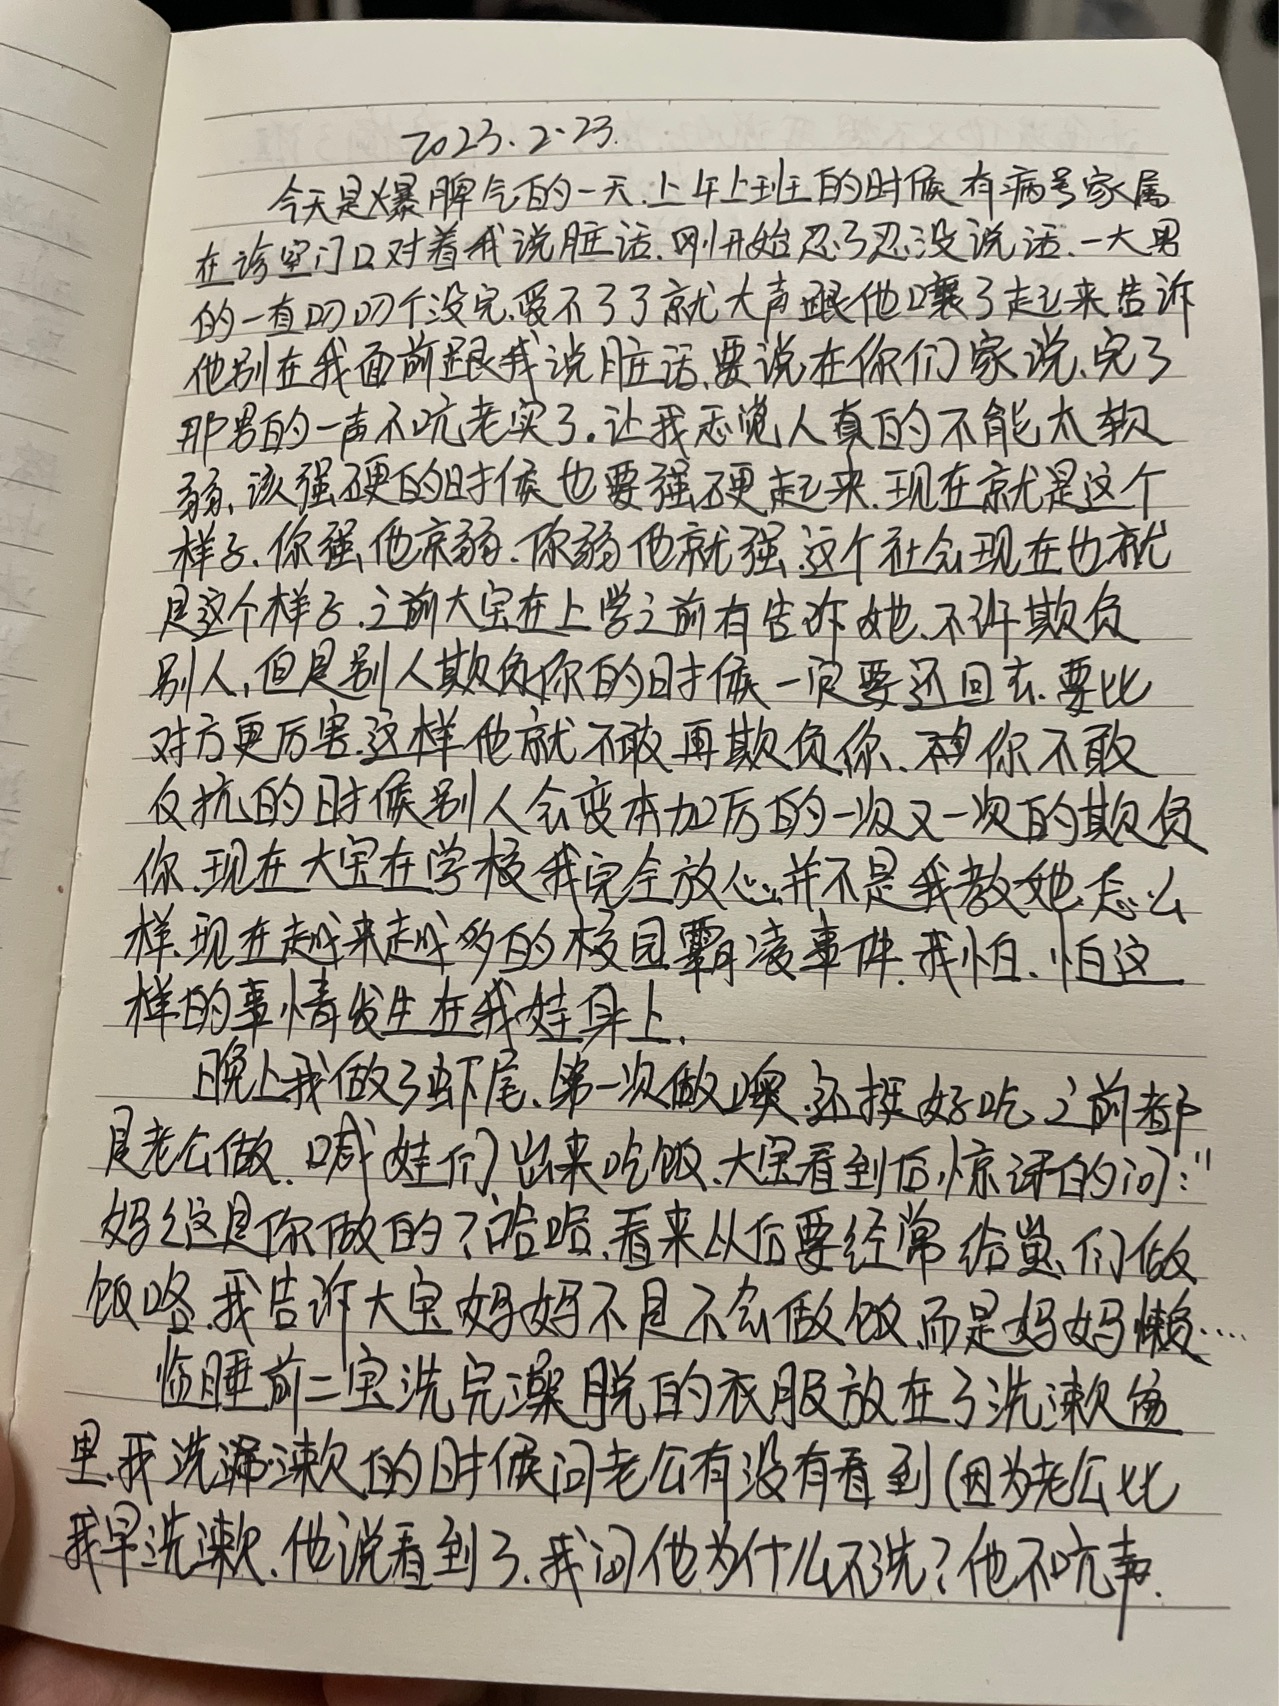 2023.2.23.
今天是爆脾气的一天.上午上班的时候有病号家属
在诊室门口对着我说脏话.刚开始忍了忍没说话.一大男
的一直叨叨个没完.受不了了就大声跟他嚷了起来告诉
他别在我面前跟我说脏话.要说在你们家说.完了
那男的一声不吭老实了.让我感觉人真的不能太软
弱.该强硬的时候也要强硬起来.现在就是这个
样子.你强他就弱.你弱他就强.这个社会现在也就
是这个样子.之前大宝在上学之前有告诉她.不许欺负
别人,但是别人欺负你的时候一定要还回去.要比
对方更厉害.这样他就不敢再欺负你.你不敢
反抗的时候别人会变本加厉的一次又一次的欺负
你.现在大宝在学校我完全放心.并不是我教她怎么
样.现在越来越多的校园霸凌事件.我怕.怕这
样的事情发生在我娃身上.
晚上我做了虾尾.第一次做噢.还挺好吃.之前都
是老公做.喊娃们出来吃饭.大宝看到后惊讶的问:"
妈妈这是你做的?哈哈.看来以后要经常给崽们做
饭咯.我告诉大宝妈妈不是不会做饭.而是妈妈懒....
临睡前二宝洗完澡脱的衣服放在了洗漱间
里.我洗漱的时候问老公有没有看到(因为老公比
我早洗漱.他说看到了.我问他为什么不洗?他不吭声.